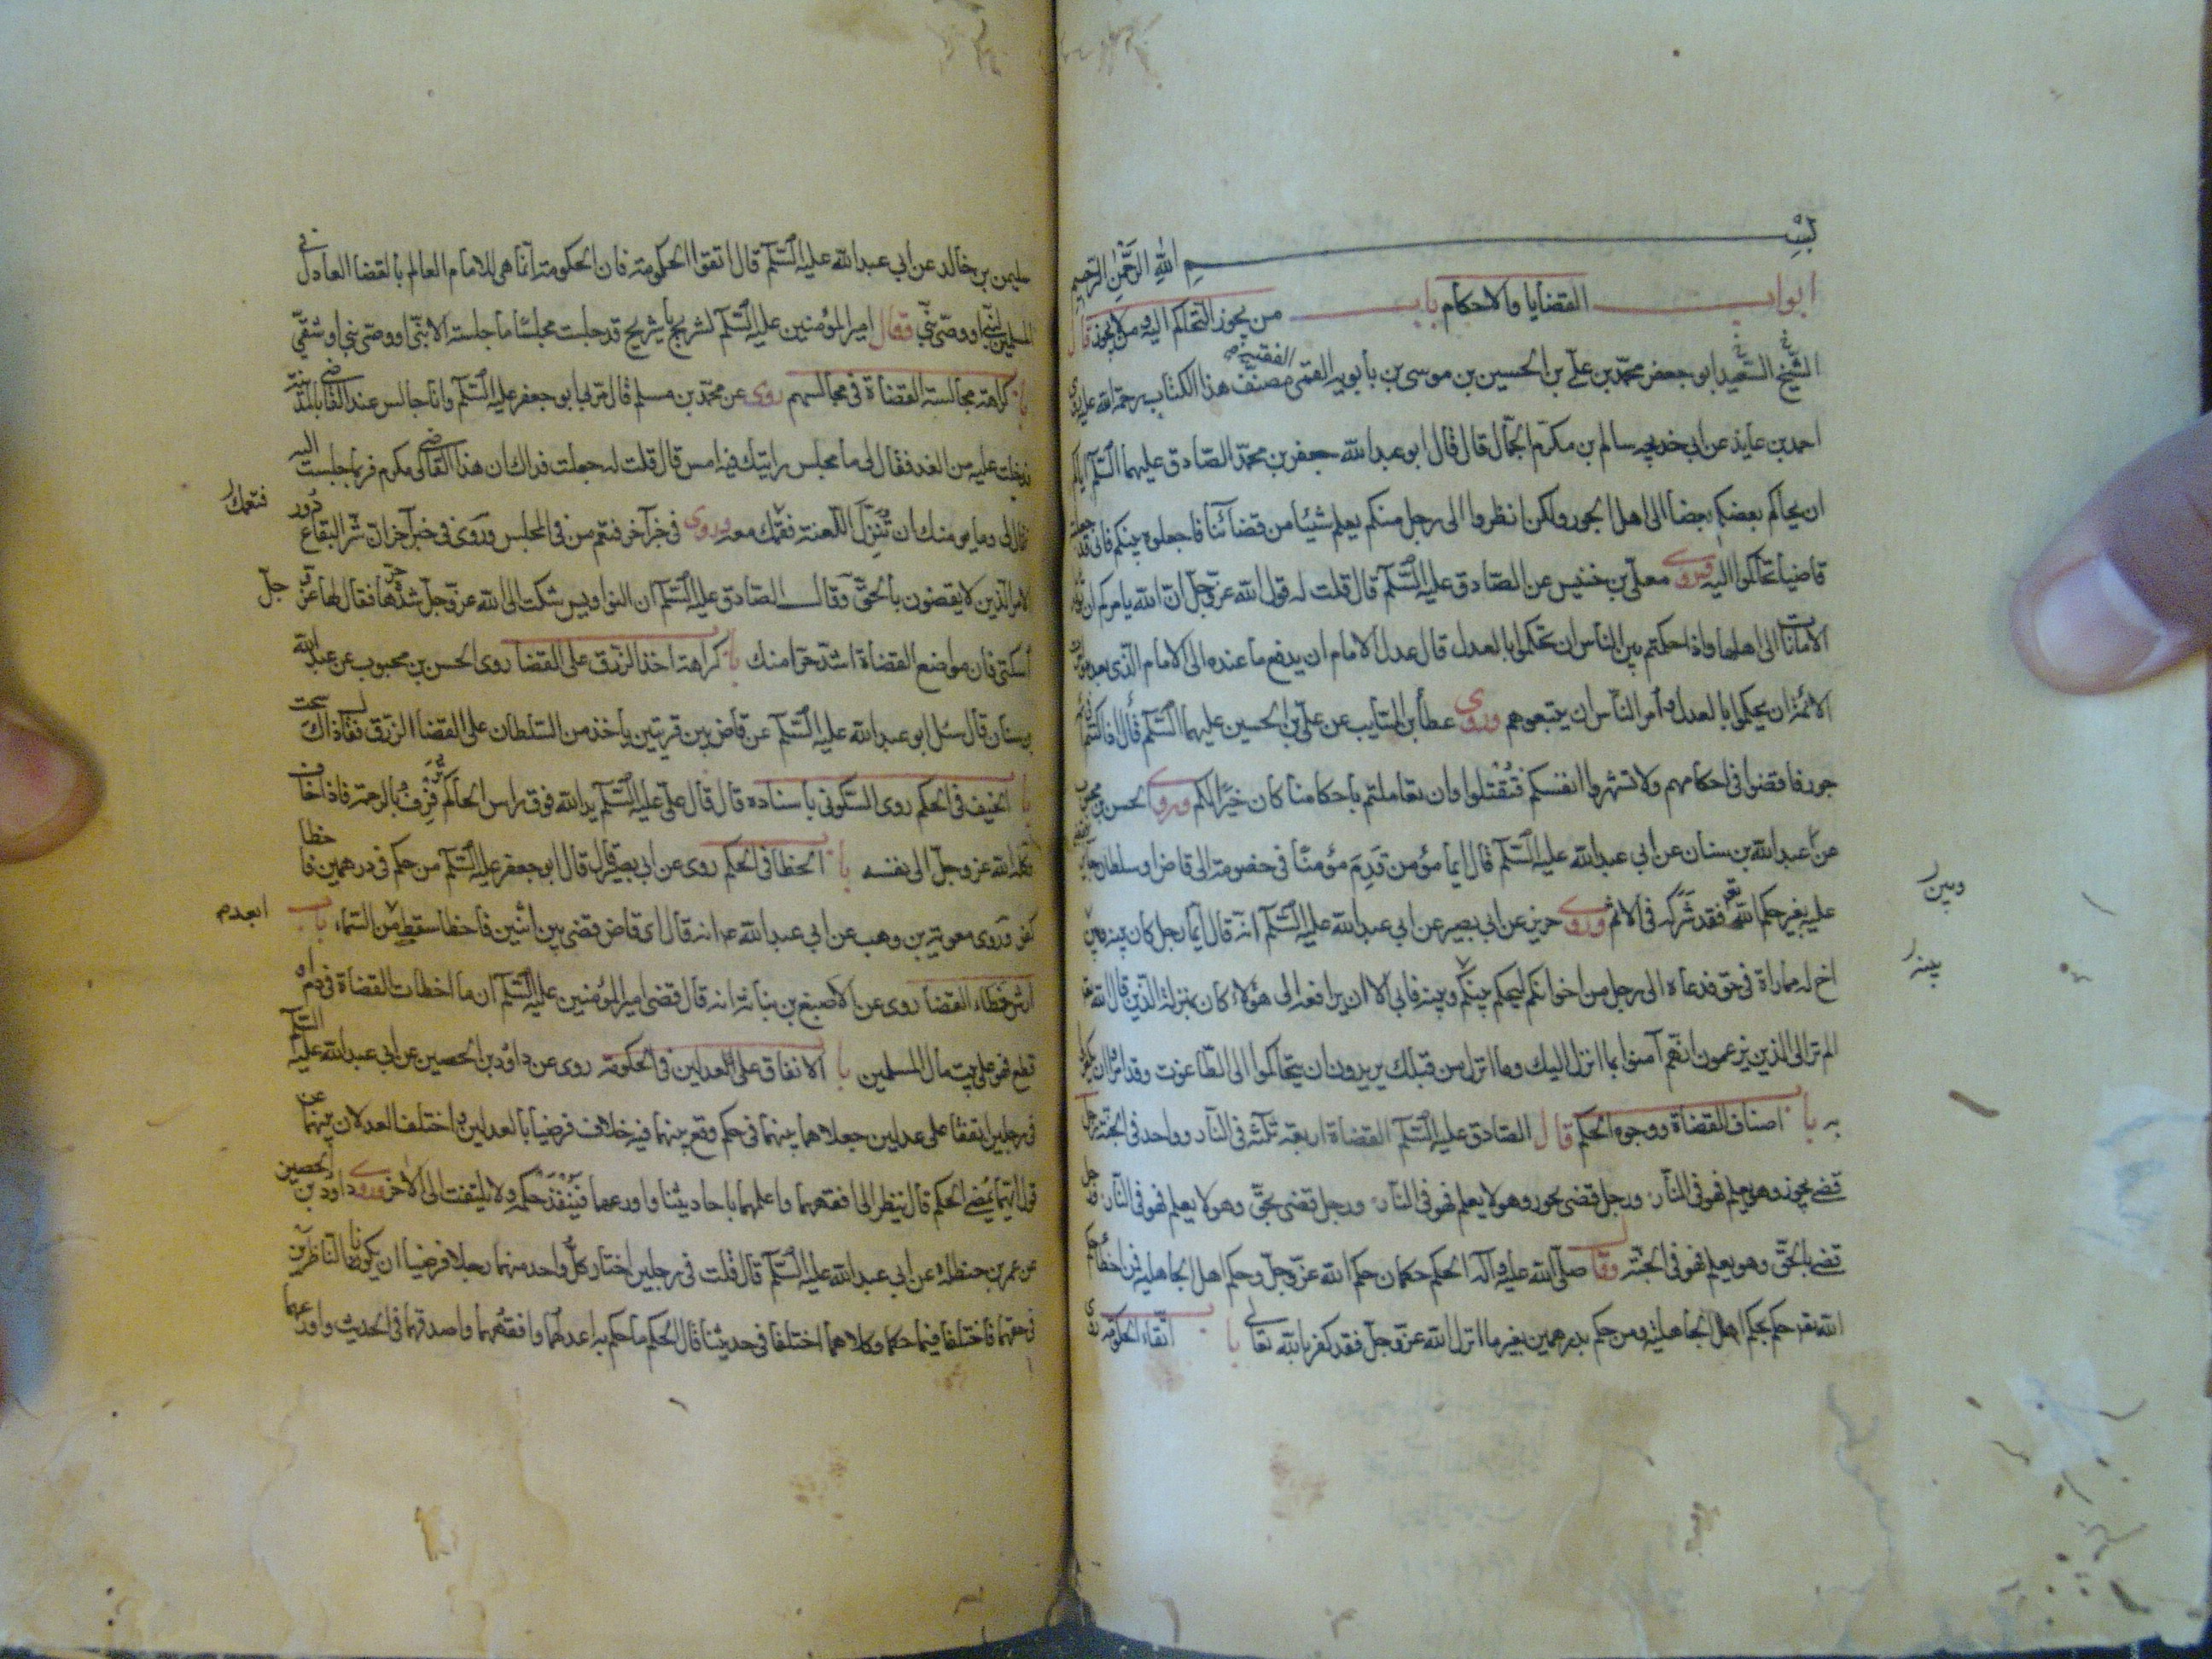 بسم الله الرحمن الرحيم
ابواب القضايا والاحكام باب من يجوز التحاكم اليه ومن لا يجوز قال
الشيخ السعيد ابو جعفر محمد بن علي بن الحسين بن موسى بن بابويه القمى الفقيه مصنف هذا الكتاب رحمة الله عليه روى
احمد بن عايذ عن ابي خديجه سالم بن مكرم الجمال قال قال ابو عبد الله جعفر بن محمد الصادق عليهما السلم اياكم
ان يحاكم بعضكم بعضا الى اهل الجور ولكن انظروا الى رجل منكم يعلم شيئا من قضائنا فاجعلوه بينكم فانى قد جعلته
قاضيا فتحاكموا اليه وروى معلى بن خنيس عن الصادق عليه السلم قال قلت له قول الله عز وجل ان الله يامركم ان تؤدوا
الامانات الى اهلها واذا حكمتم بين الناس ان تحكموا بالعدل قال عدل الامام ان يدفع ما عنده الى الامام الذى بعده
الائمة ان يحكموا بالعدل وامر الناس ان يتبعوهم وروى عطا بن السايب عن على بن الحسين عليهما السلم قال اذا كنتم
جور فاقضوا فى احكامهم ولا تشهروا انفسكم فتقتلوا وان تعاملتم باحكامنا كان خيرا لكم وروى الحسن بن محبوب
عن عبد الله بن سنان عن ابي عبد الله عليه السلم قال ايما مؤمن قدم مؤمنا فى خصومة الى قاض او سلطان جاير
عليه بغير حكم الله فقد شركه فى الاثم وروى حريز عن ابى بصير عن ابى عبد الله عليه السلم انه قال ايما رجل كان بينه وبين
وبين
اخ له مماراة فى حق فدعاه الى رجل من اخوانكم ليحكم بينكم وبينه فابى الا ان يرافعه الى هؤلاء كان بمنزلة الذين قال الله
بينه
الم تر الى الذين يزعمون انهم آمنوا بما انزل اليك وما انزل من قبلك يريدون ان يتحاكموا الى الطاغوت وقد امروا ان يكفروا
به باب اصناف القضاة ووجوه الحكم قال الصادق عليه السلم القضاة اربعة ثلثة فى النار وواحد فى الجنة رجل
قضى بجور وهو يعلم فهو فى النار ورجل قضى بجور وهو لا يعلم فهو فى النار ورجل قضى بحق وهو لا يعلم فهو فى النار ورجل
قضى بالحق وهو يعلم فهو فى الجنة وقال صلى الله عليه وآله الحكم حكمان حكم الله عز وجل وحكم اهل الجاهلية فمن اخطأ حكم
الله عز حكم بحكم اهل الجاهلية ومن حكم بدرهمين بغير ما انزل الله عز وجل فقد كفر بالله تعالى باب اتقاء الحكومة روى
سليمن بن خالد عن ابي عبد الله عليه السلم قال اتقوا الحكومة فان الحكومة انما هى للامام العالم بالقضا العادل فى
المسلمين لنبى او وصى نبى وقال امير المؤمنين عليه السلم لشريح يا شريح قد جلست مجلسا ما جلسه الا نبى او وصى نبى او شقى
باب كراهة مجالسة القضاة فى مجالسهم روى عن محمد بن مسلم قال مر بى ابو جعفر عليه السلم وانا جالس عند القاضى بالمدينة
فدخلت عليه من الغد فقال لى ما مجلس رايتك فيه امس قال قلت له جعلت فداك ان هذا القاضى لى مكرم فربما جلست اليه
فقال لى وما يومنك ان تنزل اللعنة فتعمك معه وروى فى خبر آخر فتعم من فى المجلس وروى فى خبر آخر ان شر البقاع دور
فتعمك
الامرا الذين لا يقضون بالحق وقال الصادق عليه السلم ان النواويس شكت الى الله عز وجل شدة حرها فقال لها عز
جل
اسكتى فان مواضع القضاة اشد حرا منك باب كراهة اخذ الرزق على القضا روى الحسن بن محبوب عن عبد الله
بن سنان قال سئل ابو عبد الله عليه السلم عن قاض بين قريتين ياخذ من السلطان على القضا الرزق فقال ذاك سحت
باب الحيف فى الحكم روى السكونى باسناده قال قال على عليه السلم يد الله فوق راس الحاكم ترفرف بالرحمة فاذا حاف
وكله الله عز وجل الى نفسه باب الخطا فى الحكم روى عن ابى بصير قال قال ابو جعفر عليه السلم من حكم فى درهمين فاخطا
كفر وروى معوية بن وهب عن ابى عبد الله ع انه قال اى قاض قضى بين اثنين فاخطا سقط من السماء باب
ابعد م
ارش خطاء القضا روى عن الاصبغ بن نباتة انه قال قضى امير المؤمنين عليه السلم ان ما اخطات القضاة فى دم او
قطع فهو على بيت مال المسلمين باب الاتفاق على العدلين فى الحكومة روى عن داود بن الحصين عن ابى عبد الله عليه السلم
فى رجلين اتفقا على عدلين جعلاهما بينهما فى حكم وقع بينهما فيه خلاف فرضيا بالعدلين واختلف العدلان بينهما عن
قول ايهما يمضى الحكم قال ينظر الى افقههما واعلمهما باحاديثنا واورعهما فينفذ حكمه ولا يلتفت الى الاخر وروى داود بن الحصين
عن عمر بن حنظلة عن ابى عبد الله عليه السلم قال قلت فى رجلين اختار كل واحد منهما رجلا فرضيا ان يكونا الناظرين
فى حقهما فاختلفا فيما حكما وكلاهما اختلفا فى حديثنا قال الحكم ما حكم به اعدلهما وافقههما واصدقهما فى الحديث واورعهما